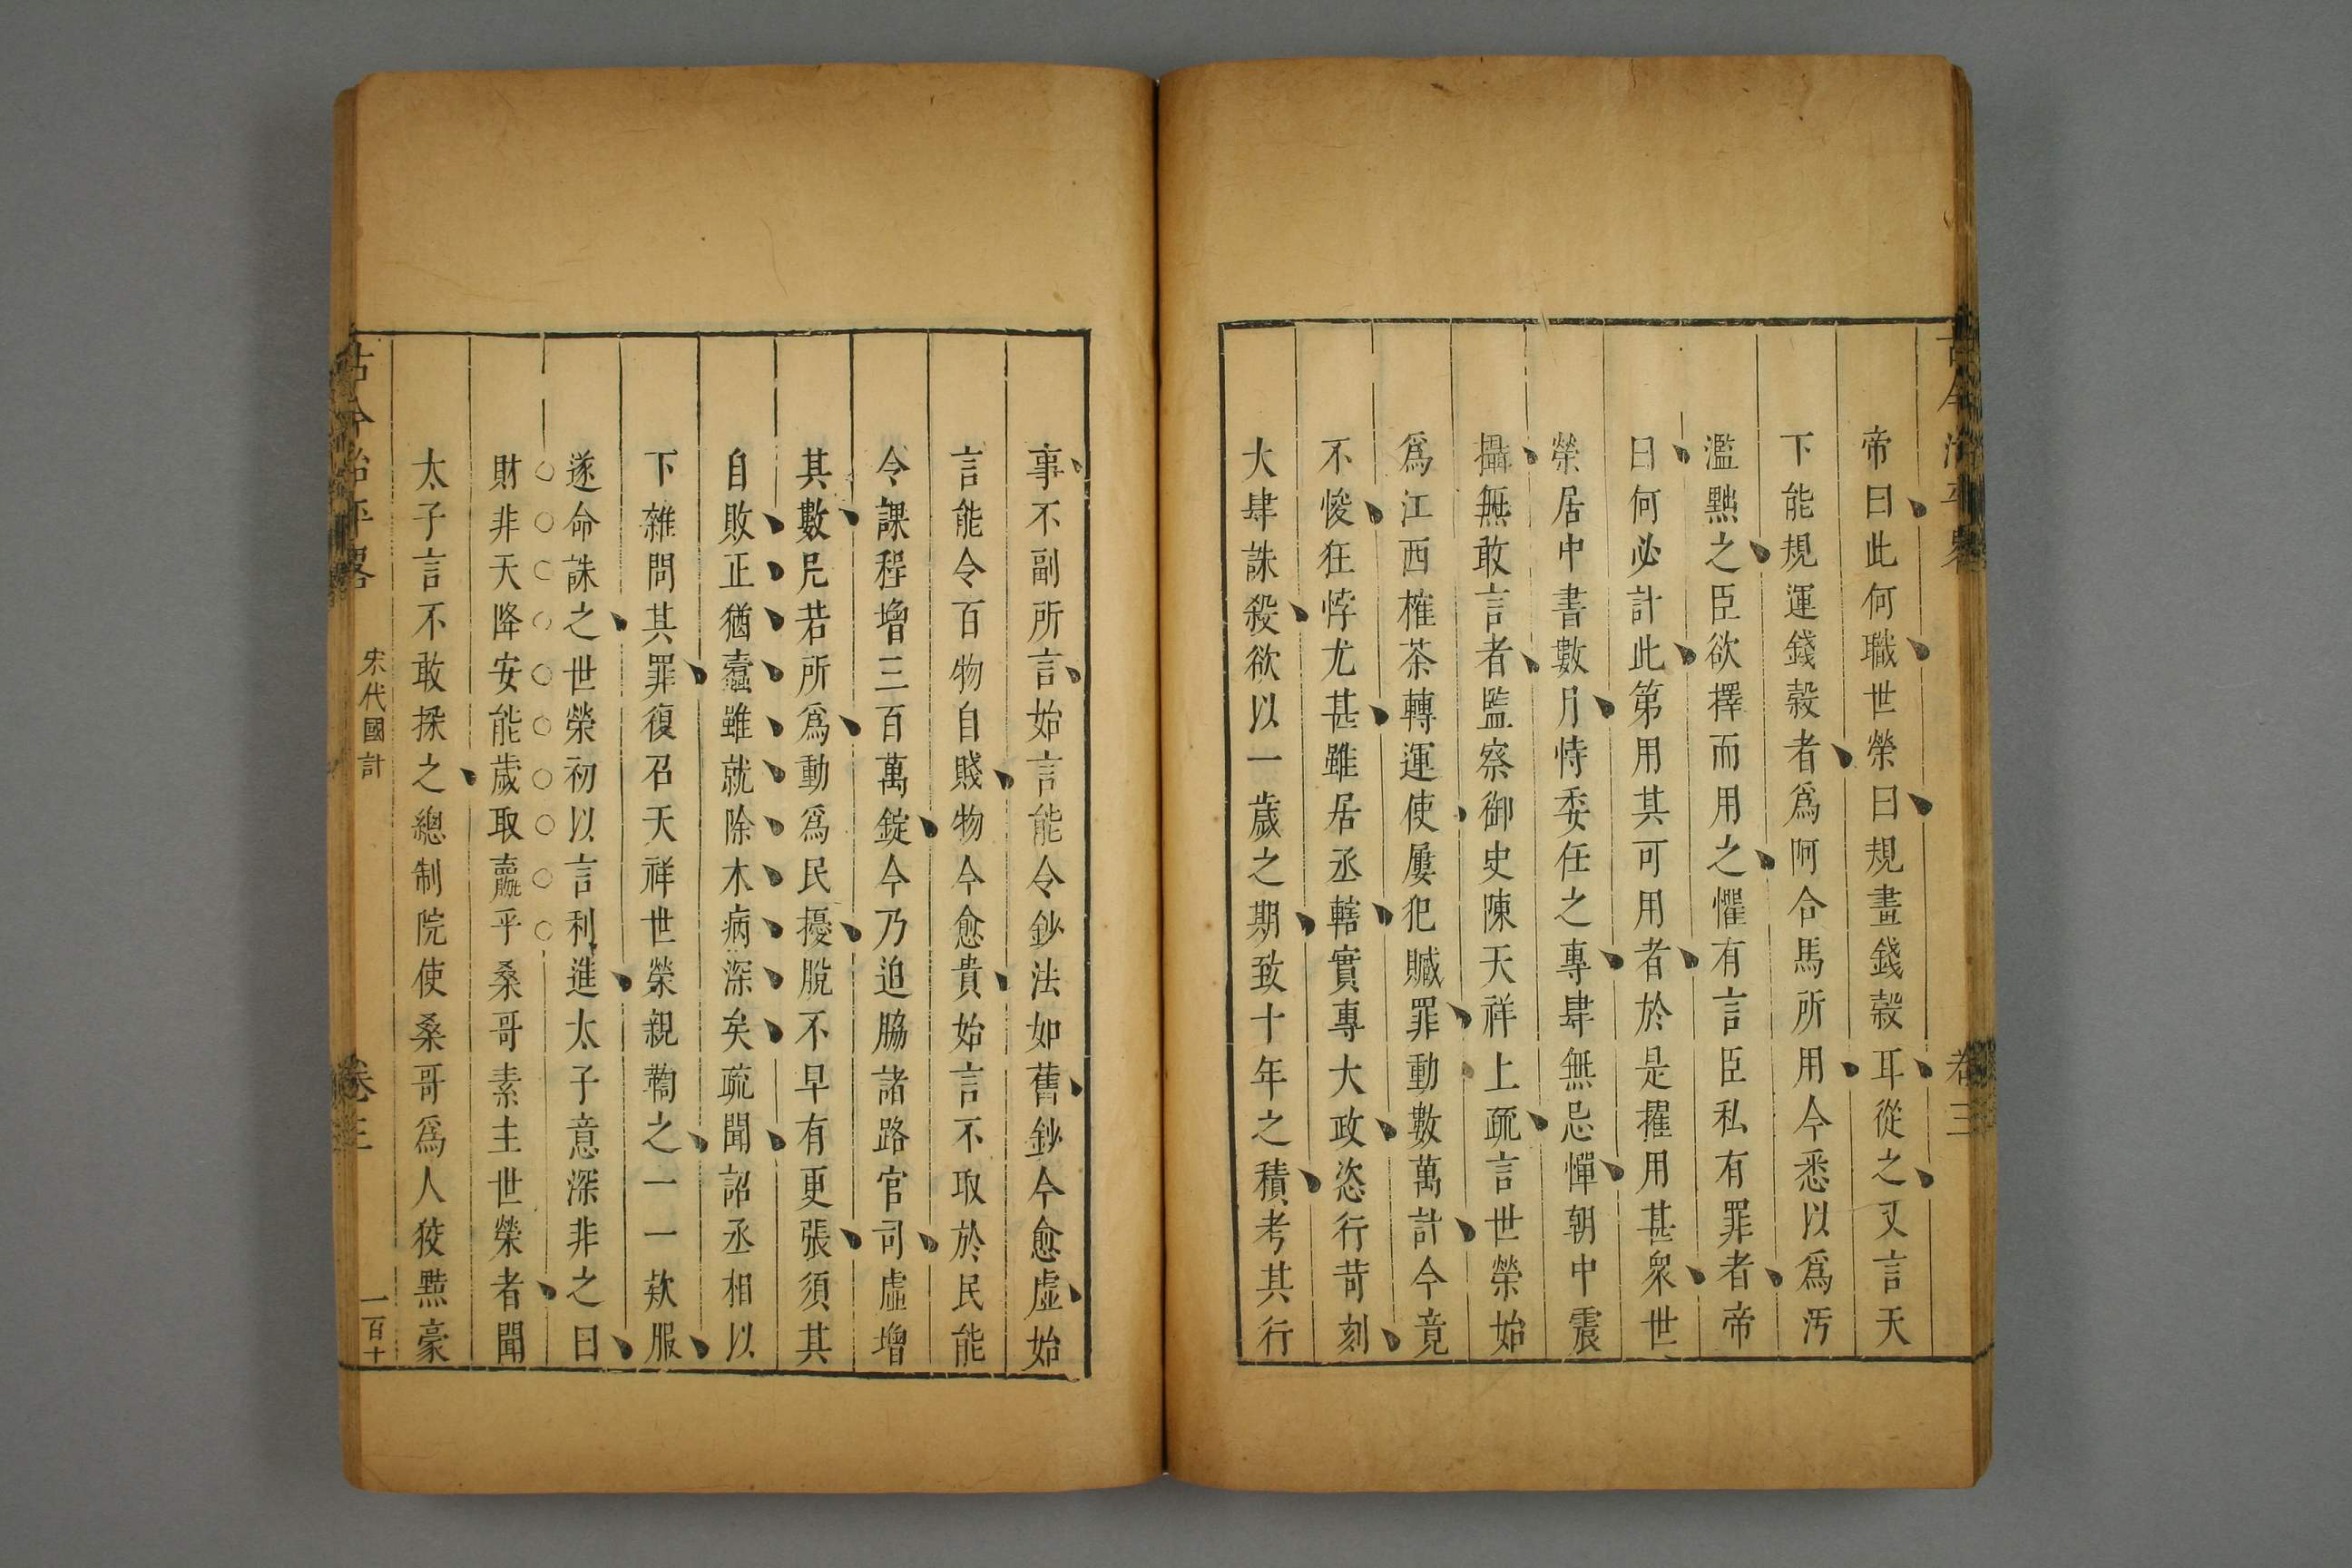 古今治平畧
卷三
帝曰此何職世榮曰規畫錢穀耳從之又言天
下能規運錢穀者爲阿合馬所用今悉以爲汚
濫黜之臣欲擇而用之懼有言臣私有罪者帝
曰何必計此第用其可用者於是擢用甚衆世
榮居中書數月恃委任之專肆無忌憚朝中震
攝無敢言者監察御史陳天祥上疏言世榮始
爲江西榷茶轉運使屢犯贓罪動數萬計今竟
不悛狂悖尤甚雖居丞轄實專大政恣行苛刻
大肆誅殺欲以一歲之期致十年之積考其行
事不副所言始言能令鈔法如舊鈔今愈虛始
言能令百物自賤物今愈貴始言不取於民能
令課程增三百萬錠今乃迫脇諸路官司虛增
其數凡若所爲動爲民擾脫不早有更張須其
自敗正猶蠹雖就除木病深矣疏聞詔丞相以
下雜問其罪復召天祥世榮親鞫之一一欵服
遂命誅之世榮初以言利進太子意深非之曰
財非天降安能歲取贏乎桑哥素主世榮者聞
太子言不敢捄之總制院使桑哥爲人狡黠豪
古今治平畧
宋代國計
卷三
一百十